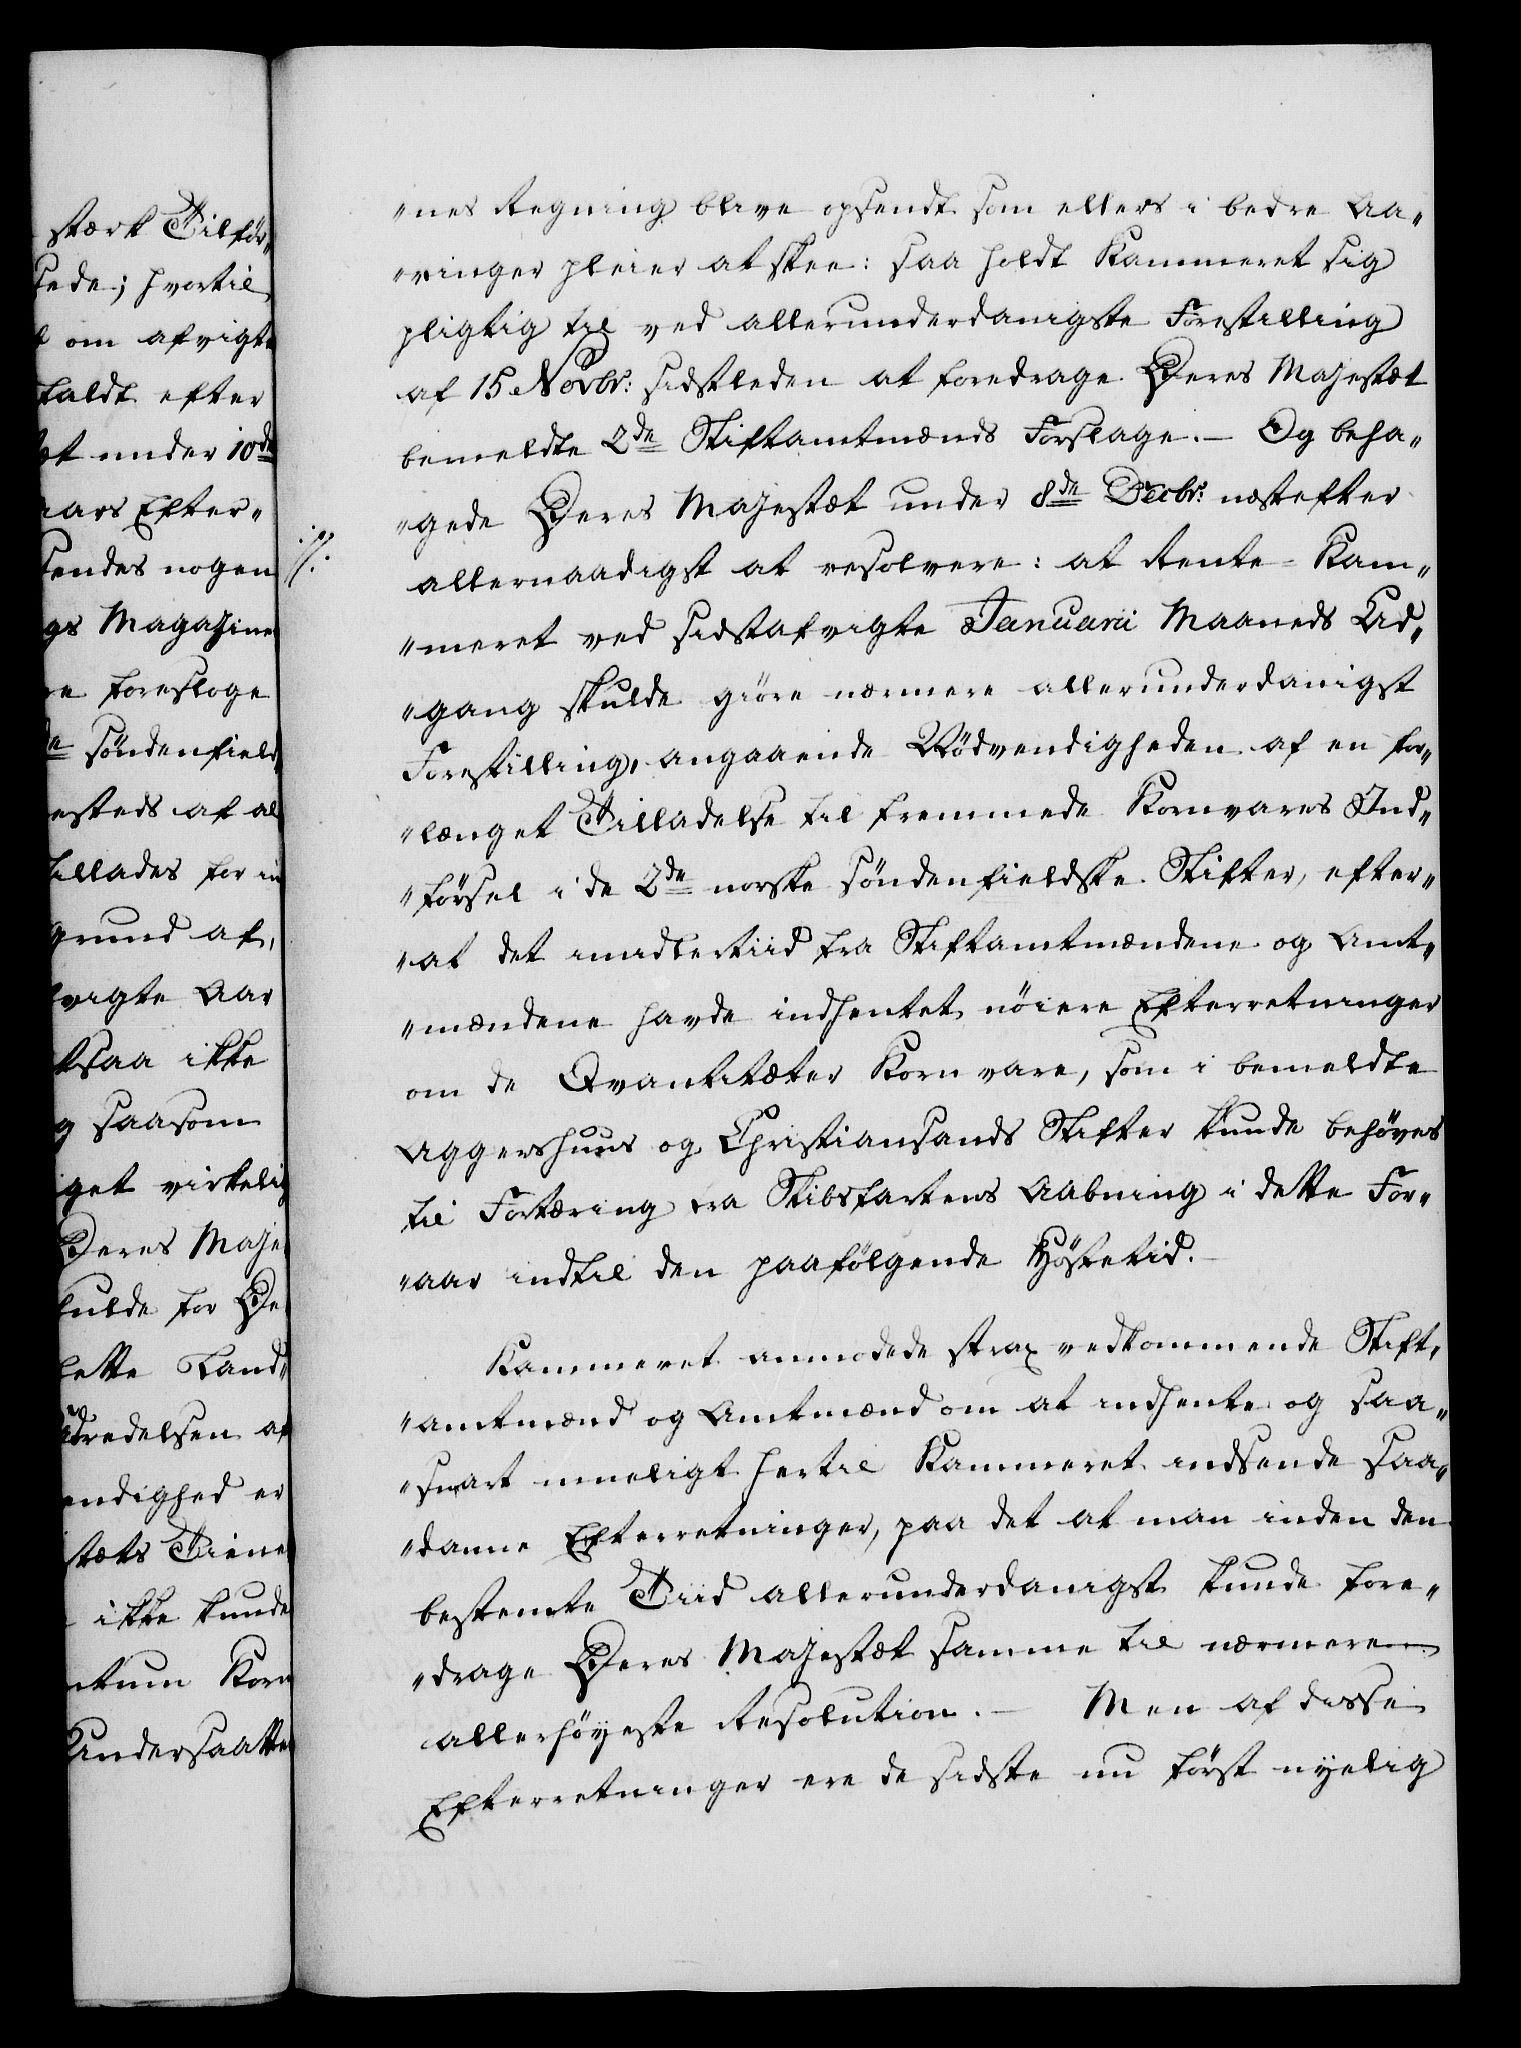 stærk Tilför„
sede; hvortil
om afvigte
faldt efter
et under 10de
aars Efter„
sendes nogen
gs Magazine
re foresloge
de söndenfield„
esteds af al
tillades for in
grund af,
lvigte Aar
ltsaa ikke
g saasom
get virkelig
Deres Maje
kulde for De
lette Land„
Udredelsen af
endighed er
stæts Tiene
ikke kunde
ntum Korn
Undersaatte
„nes Regning blive opsendt som ellers i bedre Aa„
„ringer pleier at skee: saa holdt Kammeret sig
pligtig til ved allerunderdanigste Forestilling
af 15 Novbr: sidstleden at foredrage Deres Majestæt
bemeldte 2de Stiftamtmænds Forslage. – Og beha„
„gede Deres Majestæt under 8de Decbr: næstefter
·/.
allernaadigst at resolvere: at Rente-Kam„
„meret ved sidstafvigte Januarii Maaneds Ud„
„gang skulde giöre nærmere allerunderdanigst
Forestilling, angaaende Nödvendigheden af en for„
„længet Tilladelse til fremmede Kornvares Ind„
„försel i de 2de norske söndenfieldske Stifter, efter„
„at det imidlertiid fra Stiftamtmændene og Amt„
„mændene havde indhentet nöiere Efterretninger
om de Qvantitæter Kornvare, som i bemeldte
Aggershuus og Christiansands Stifter kunde behöves
til Fortæring fra Skibsfartens Aabning i dette For„
„aar indtil den paafölgende Höstetid. –
Kammeret anmodede strax vedkommende Stift„
„amtmænd og Amtmænd om at indhente og saa„
„snart mueligt hertil Kammeret indsende saa„
„danne Efterretninger, paa det at man inden den
bestemte Tiid allerunderdanigst kunde fore„
„drage Deres Majestæt samme til nærmere
allerhöyeste Resolution. – Men af disse
Efterretninger ere de sidste nu först nyelig